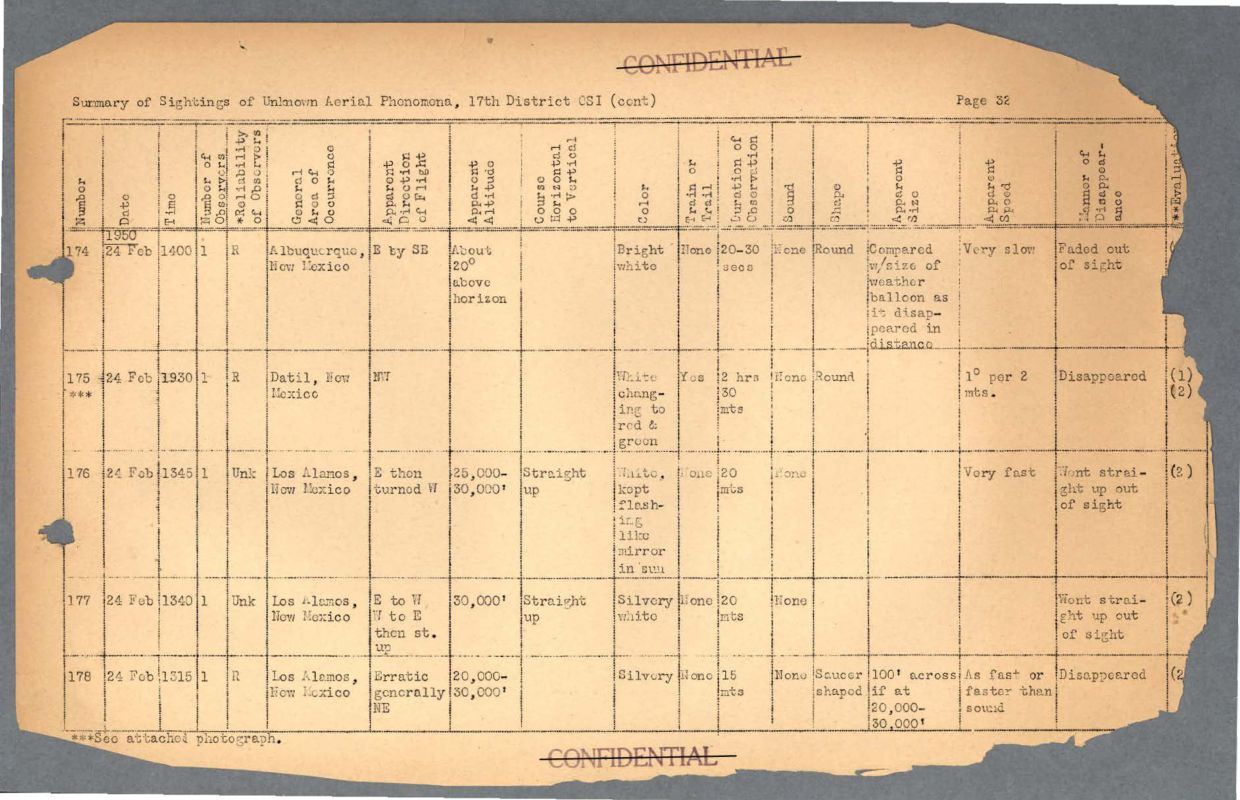 CONFIDENTIAL
Summary of Sightings of Unknown Aerial Phenomena, 17th District OSI (cont) Page 32
Number
Date
Time
Number of
Observers
*Reliability
of Observers
General
Area of
Occurrence
Apparent
Direction
of Flight
Apparent
Altitude
Course
Horizontal
to Vertical
Color
Train or
Trail
Duration of
Observation
Sound
Shape
Apparent
Size
Apparent
Speed
Manner of
Disappear-
ance
1950
174 24 Feb 1400 1 R Albuquerque, E by SE About Bright None 20-30 None Round Compared Very slow Faded out
New Mexico 20° white secs w/size of of sight
above weather
horizon balloon as
it disap-
peared in
distance
175 24 Feb 1930 1 R Datil, New NW White Yes 2 hrs None Round 1° per 2 Disappeared (1)
*** Mexico chang- 30 mts. (2)
ing to mts
red &
green
176 24 Feb 1345 1 Unk Los Alamos, E then 25,000- Straight White, None 20 None Very fast Went strai- (2)
New Mexico turned W 30,000' up kept mts ght up out
flash- of sight
ing
like
mirror
in sun
177 24 Feb 1340 1 Unk Los Alamos, E to W 30,000' Straight Silvery None 20 None Went strai- (2)
New Mexico W to E up white mts ght up out
then st. of sight
up
178 24 Feb 1315 1 R Los Alamos, Erratic 20,000- Silvery None 15 None Saucer 100' across As fast or Disappeared (2
New Mexico generally 30,000' mts shaped if at faster than
NE 20,000- sound
30,000'
***See attached photograph.
CONFIDENTIAL